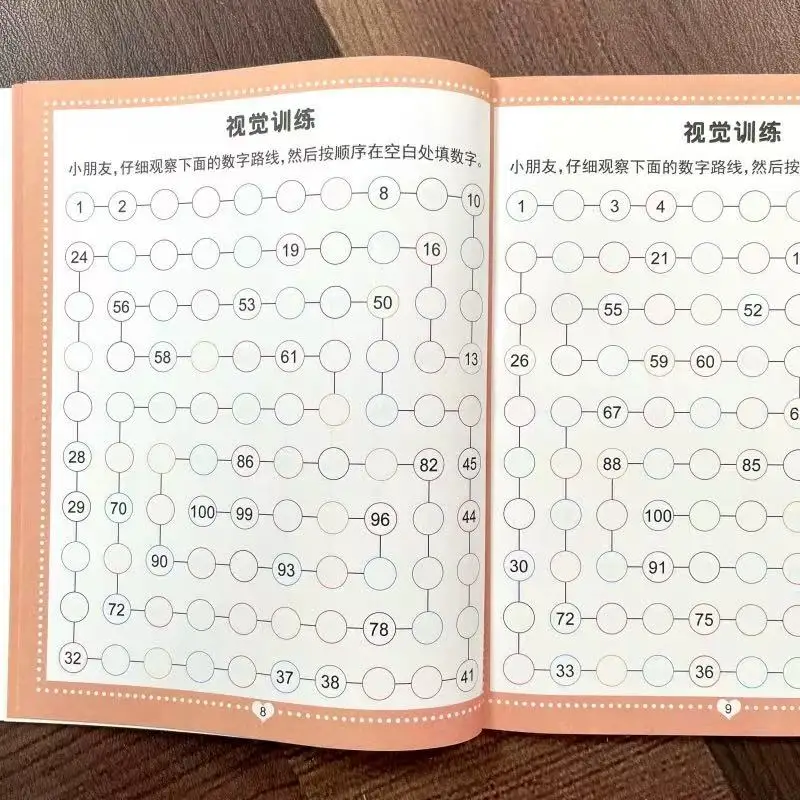 视觉训练
小朋友,仔细观察下面的数字路线,然后按顺序在空白处填数字。
1 2 8 10
24 19 16
56 53 50
58 61 13
28 86 82 45
29 70 100 99 96 44
90 93
72 78
32 37 38 41
8
视觉训练
小朋友,仔细观察下面的数字路线,然后按
1 3 4
21
55 52
26 59 60
67
88 85
100
30 91
72 75
33 36
9